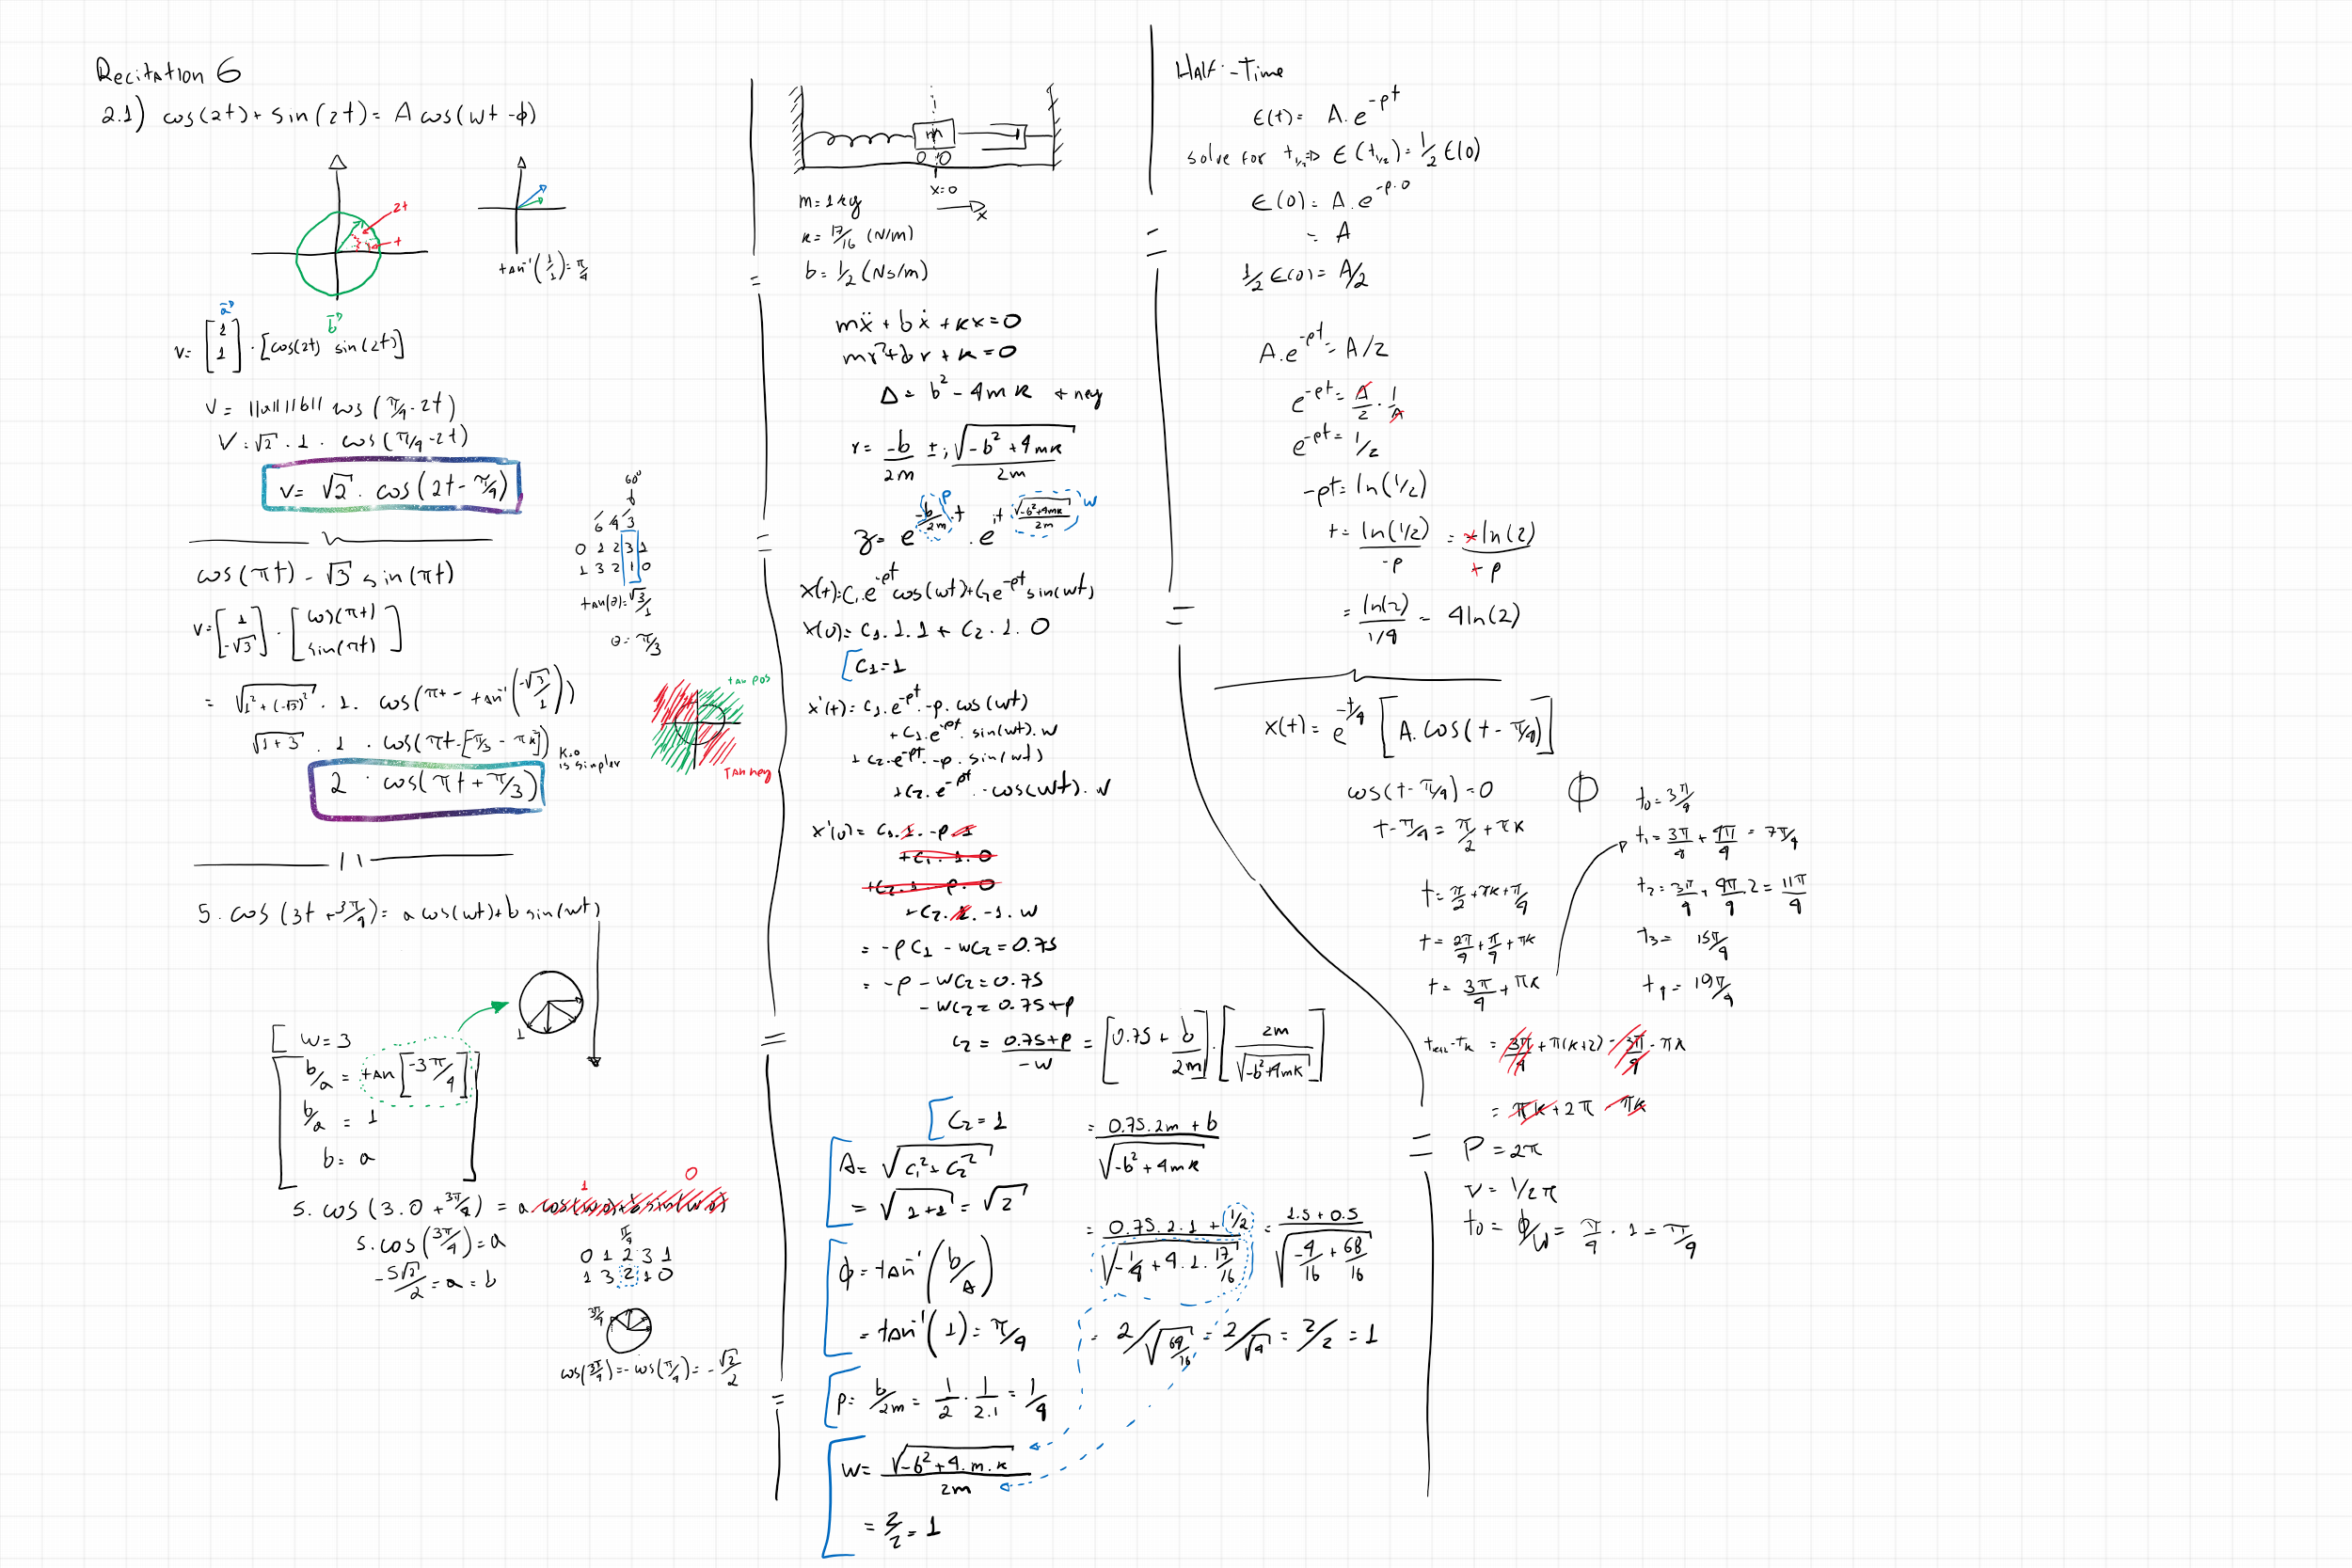 Recitation 6
2.1) cos(2t) + sin(2t) = A cos(wt - ϕ)
2t
t
tan⁻¹(1/1) = π/4
a⃗
b⃗
v = [1 1] · [cos(2t) sin(2t)]
V = ||a|| ||b|| cos(π/4 - 2t)
V = √2 . 1 . cos(π/4 - 2t)
v = √2 . cos(2t - π/4)
60°
6 4 3
0 1 2 3 1
1 3 2 1 0
tan(θ) = √3/1
θ = π/3
cos(πt) - √3 sin(πt)
v = [1 -√3] · [cos(πt) sin(πt)]
= √(1² + (-√3)²) . 1 . cos(πt - tan⁻¹(-√3/1))
√(1+3) . 1 . cos(πt - [-π/3 - πk])
k=0 is simpler
2 · cos(πt + π/3)
tan pos
Tan neg
5. cos(3t + 3π/4) = a cos(wt) + b sin(wt)
w = 3
b/a = tan[-3π/4]
b/a = 1
b = a
1
5. cos(3.0 + 3π/4) = a cos(w0) + b sin(w0)
1
0
5. cos(3π/4) = a
-5√2/2 = a = b
π/4
0 1 2 3 1
1 3 2 1 0
3π/4
cos(3π/4) = -cos(π/4) = -√2/2
m
x=0
x
m = 1 kg
k = 17/16 (N/m)
b = 1/2 (Ns/m)
mẍ + bẋ + kx = 0
mr² + br + k = 0
Δ = b² - 4mk → neg
r = -b/2m ± i √(-b² + 4mk)/2m
p
w
z = e^(-b/2m t) . e^(it √(-b²+4mk)/2m)
x(t) = C₁e^(-pt) cos(wt) + C₂e^(-pt) sin(wt)
x(0) = C₁.1.1 + C₂.1.0
C₁ = 1
x'(t) = C₁.e^(-pt).-p.cos(wt)
+ C₁.e^(-pt).sin(wt).w
+ C₂.e^(-pt).-p.sin(wt)
+ C₂.e^(-pt).-cos(wt).w
x'(0) = C₁.1.-p.1
+C₁.1.0
+C₂.1.-p.0
+C₂.1.-1.w
= -pC₁ - wC₂ = 0.75
= -p - wC₂ = 0.75
- wC₂ = 0.75 + p
C₂ = (0.75+p)/-w = [0.75 + b/2m] . [2m/√(-b²+4mk)]
C₂ = 1
= (0.75.2m + b)/√(-b²+4mk)
A = √(C₁² + C₂²)
= √(1+1) = √2
= (0.75.2.1 + 1/2)/√(-1/4 + 4.1.17/16) = (1.5 + 0.5)/√(-4/16 + 68/16)
ϕ = tan⁻¹(b/A)
= tan⁻¹(1) = π/4
= 2/√(64/16) = 2/√4 = 2/2 = 1
p = b/2m = 1/2 . 1/2.1 = 1/4
w = √(-b² + 4.m.k)/2m
= 2/2 = 1
Half-Time
ϵ(t) = A.e^(-pt)
solve for t₁/₂ ⇒ ϵ(t₁/₂) = 1/2 ϵ(0)
ϵ(0) = A.e^(-p.0)
= A
1/2 ϵ(0) = A/2
A.e^(-pt) = A/2
e^(-pt) = A/2 . 1/A
e^(-pt) = 1/2
-pt = ln(1/2)
t = ln(1/2)/-p = -ln(2)/-p
= ln(2)/1/4 = 4ln(2)
x(t) = e^(-t/4) [A.cos(t - π/4)]
cos(t - π/4) = 0
ϕ
t - π/4 = π/2 + πk
t = π/2 + πk + π/4
t = 2π/4 + π/4 + πk
t = 3π/4 + πk
t₀ = 3π/4
t₁ = 3π/4 + 4π/4 = 7π/4
t₂ = 3π/4 + 4π/4 2 = 11π/4
t₃ = 15π/4
t₄ = 19π/4
tₖ₊₂ - tₖ = 3π/4 + π(k+2) - 3π/4 - πk
= πk + 2π - πk
P = 2π
ν = 1/2π
t₀ = ϕ/w = π/4 . 1 = π/4